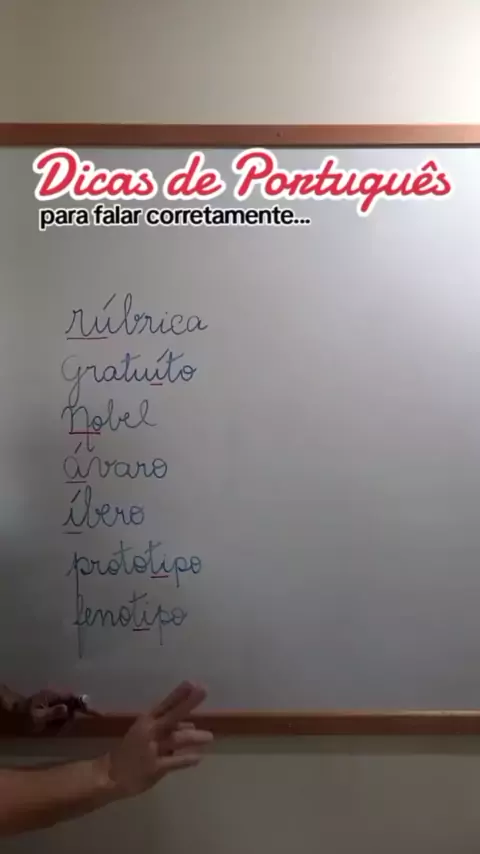 Dicas de Português
para falar corretamente...
rúbrica
gratuíto
nobel
ávaro
íbero
prototipo
fenotipo